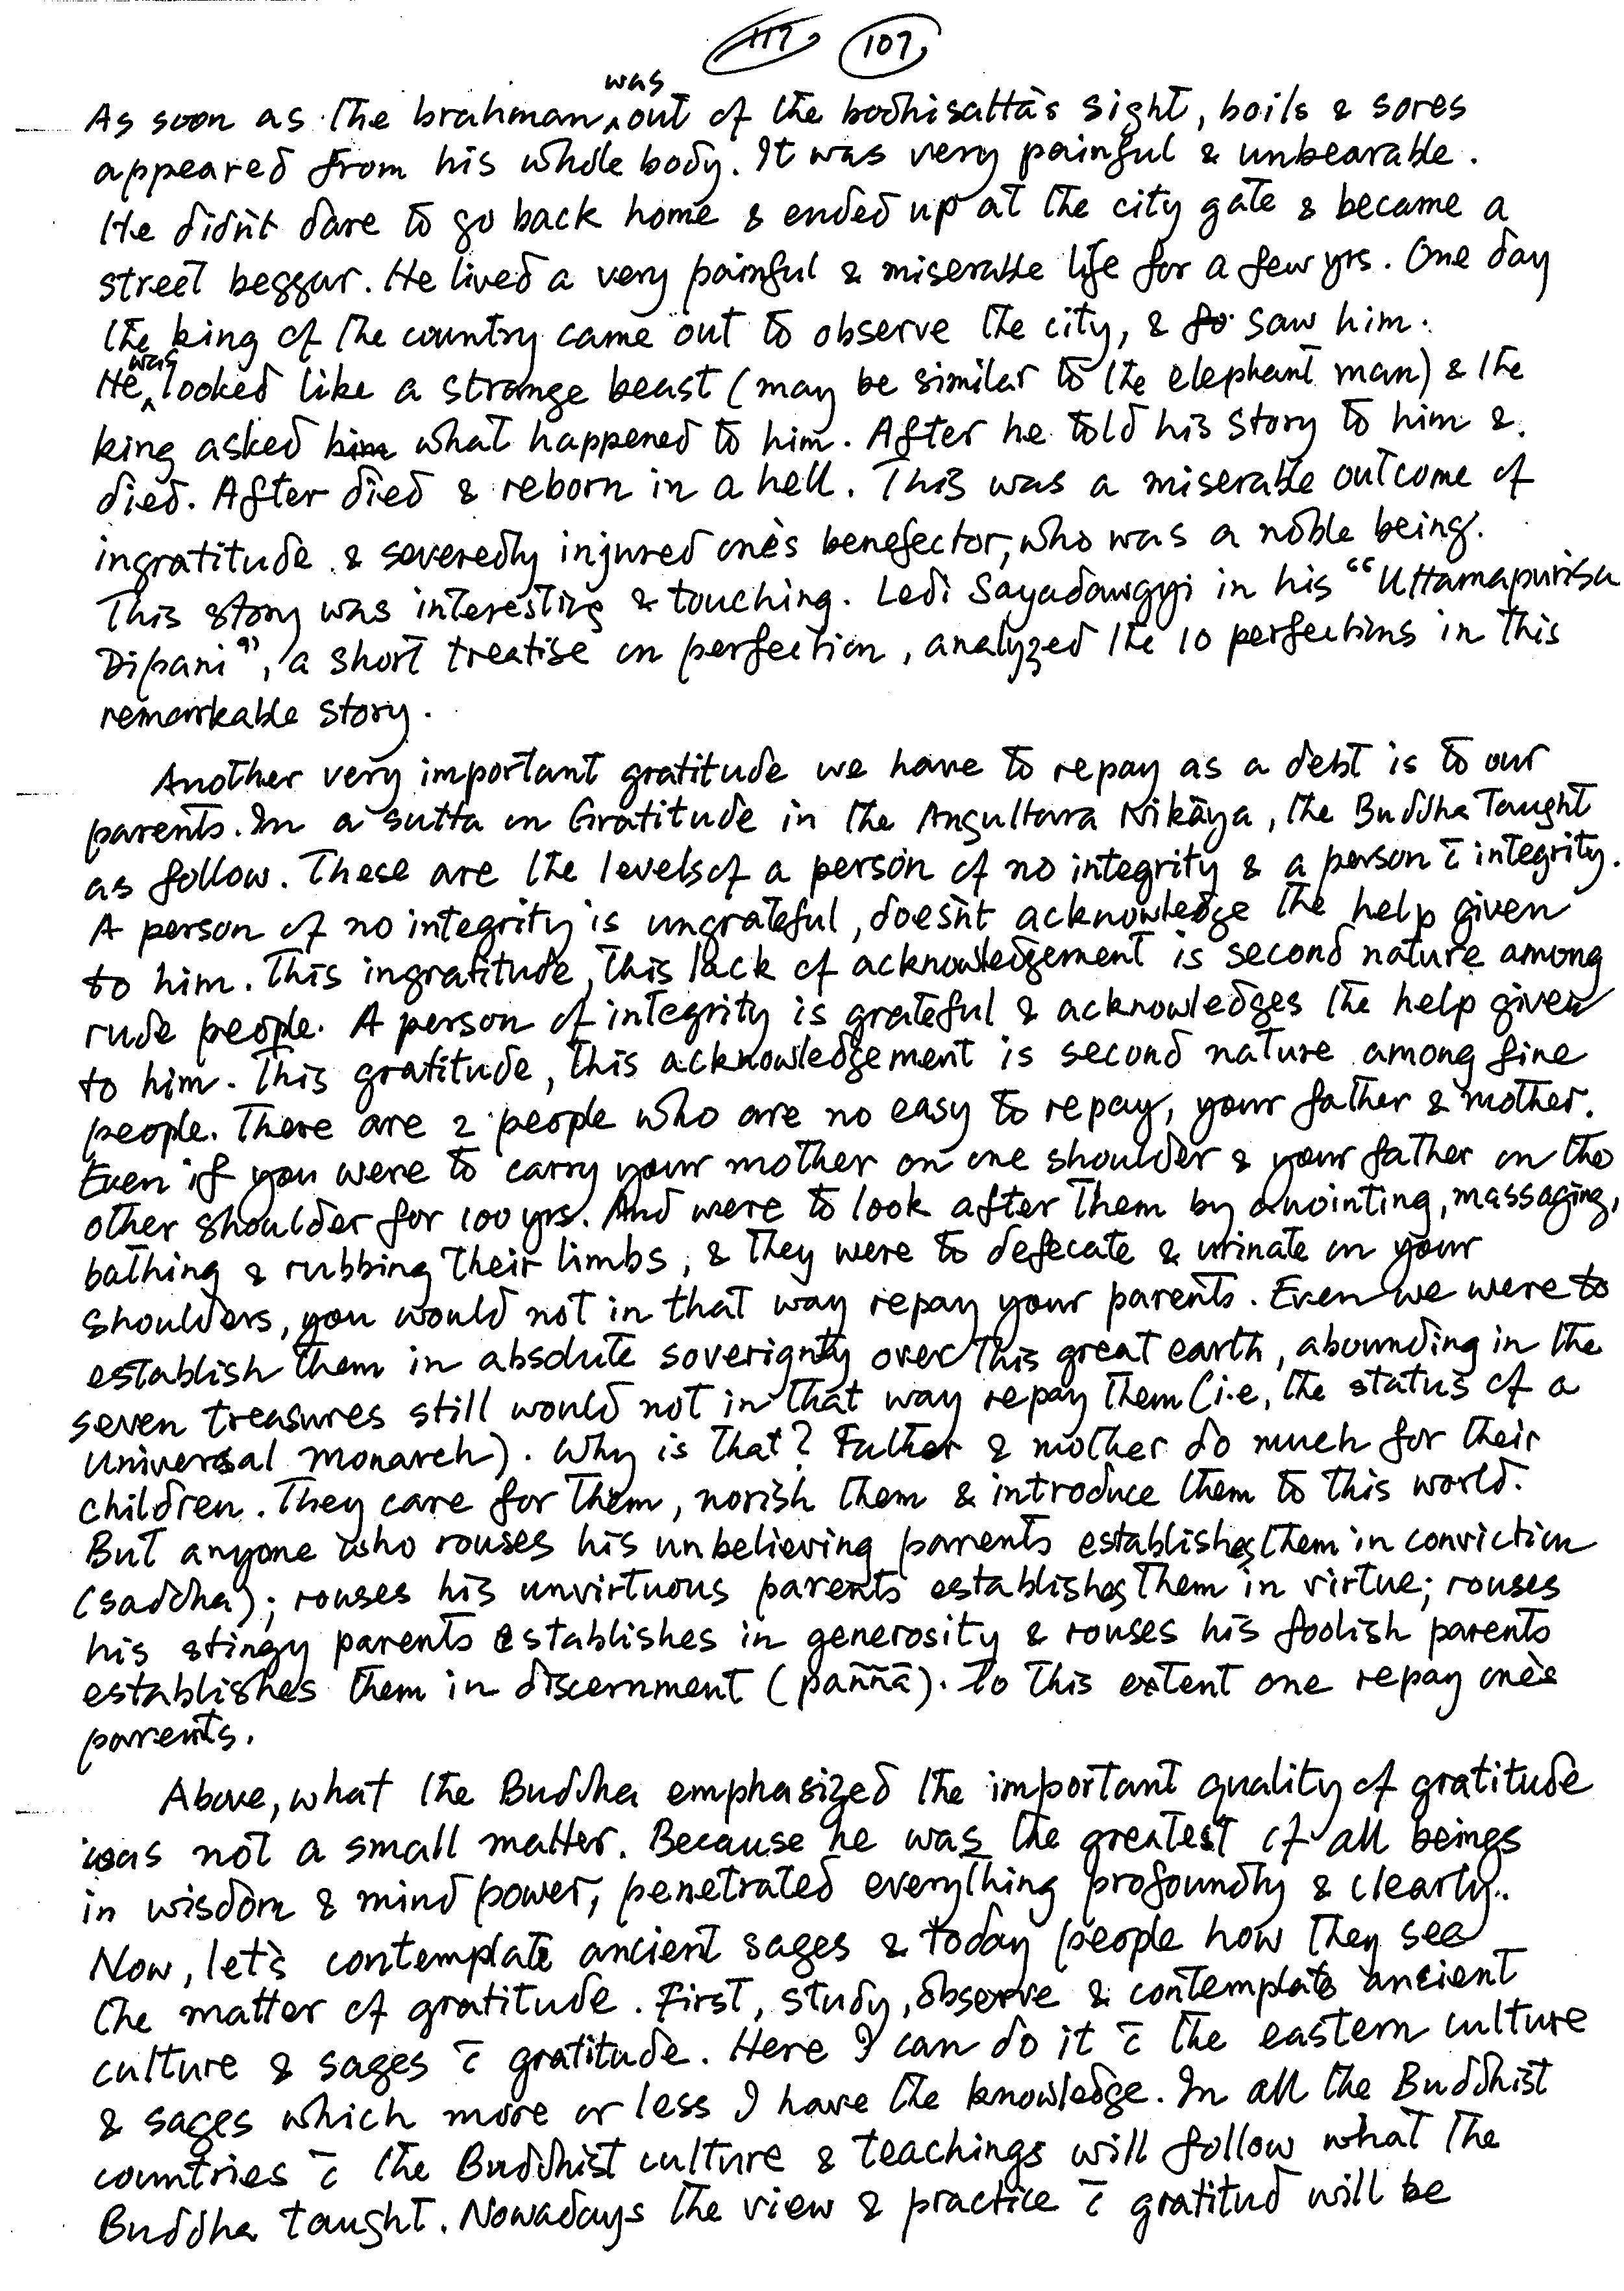 117 107
As soon as the brahman was out of the bodhisatta's sight, boils & sores
appeared from his whole body. It was very painful & unbearable.
He didn't dare to go back home & ended up at the city gate & became a
street beggar. He lived a very painful & miserable life for a few yrs. One day
the king of the country came out to observe the city, & so saw him.
He was looked like a strange beast (may be similar to the elephant man) & the
king asked him what happened to him. After he told his story to him &
died. After died & reborn in a hell. This was a miserable outcome of
ingratitude & severedly injured one's benefector, who was a noble being.
This story was interesting & touching. Ledi Sayadawgyi in his "Uttamapurisa
Dipani", a short treatise on perfection, analyzed the 10 perfections in this
remarkable story.
Another very important gratitude we have to repay as a debt is to our
parents. In a sutta on Gratitude in the Anguttara Nikāya, the Buddha taught
as follow. These are the levels of a person of no integrity & a person c̄ integrity.
A person of no integrity is ungrateful, doesn't acknowledge the help given
to him. This ingratitude, this lack of acknowledgement is second nature among
rude people. A person of integrity is grateful & acknowledges the help given
to him. This gratitude, this acknowledgement is second nature among fine
people. There are 2 people who are no easy to repay, your father & mother.
Even if you were to carry your mother on one shoulder & your father on the
other shoulder for 100 yrs. And were to look after them by anointing, massaging,
bathing & rubbing their limbs, & they were to defecate & urinate on your
shoulders, you would not in that way repay your parents. Even we were to
establish them in absolute soverignty over this great earth, abounding in the
seven treasures still would not in that way repay them (i.e, the status of a
Universal Monarch). Why is that? Father & mother do much for their
children. They care for them, norish them & introduce them to this world.
But anyone who rouses his unbelieving parents establishes them in conviction
(saddha); rouses his unvirtuous parents establishes them in virtue; rouses
his stingy parents establishes in generosity & rouses his foolish parents
establishes them in discernment (paññā). To this extent one repay one's
parents.
Above, what the Buddha emphasized the important quality of gratitude
was not a small matter. Because he was the greatest of all beings
in wisdom & mind power, penetrated everything profoundly & clearly.
Now, let's contemplate ancient sages & today people how they see
the matter of gratitude. First, study, observe & contemplate ancient
culture & sages c̄ gratitude. Here I can do it c̄ the eastern culture
& sages which more or less I have the knowledge. In all the Buddhist
countries c̄ the Buddhist culture & teachings will follow what the
Buddha taught. Nowadays the view & practice c̄ gratitud will be